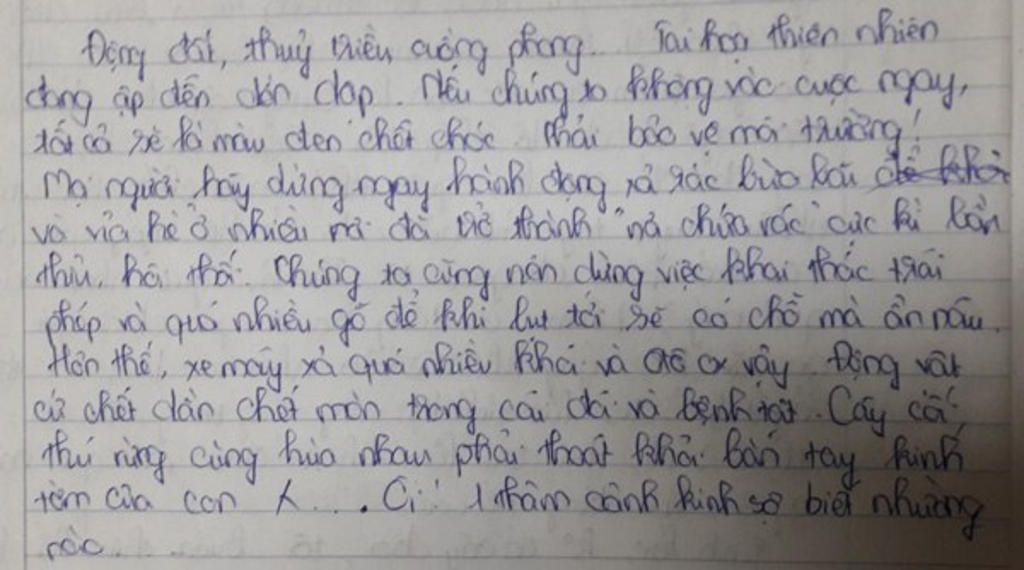 Động đất, thuỷ triều cuồng phong... Tai hoạ thiên nhiên
đang ập đến dồn dập. Nếu chúng ta không vác cuộc ngay,
tất cả sẽ là màu đen chết chóc. Phải bảo vệ môi trường!
Mọi người hãy dừng ngay hành động xả rác bừa bãi
và vỉa hè ở nhiều nơi đã trở thành "nơi chứa rác" cực kì bẩn
thỉu, hôi thối. Chúng ta cũng nên dừng việc khai thác trái
phép và quá nhiều gỗ để khi lụt tới sẽ có chỗ mà ẩn náu.
Hơn thế, xe máy xả quá nhiều khói và ôtô cx vậy. Động vật
cứ chết dần chết mòn trong cái đói và bệnh tật. Cây cối,
thú rừng cùng hùa nhau phải thoát khỏi bàn tay kinh
tởm của con X.... Ôi! 1 thảm cảnh kinh sợ biết nhường
nào...